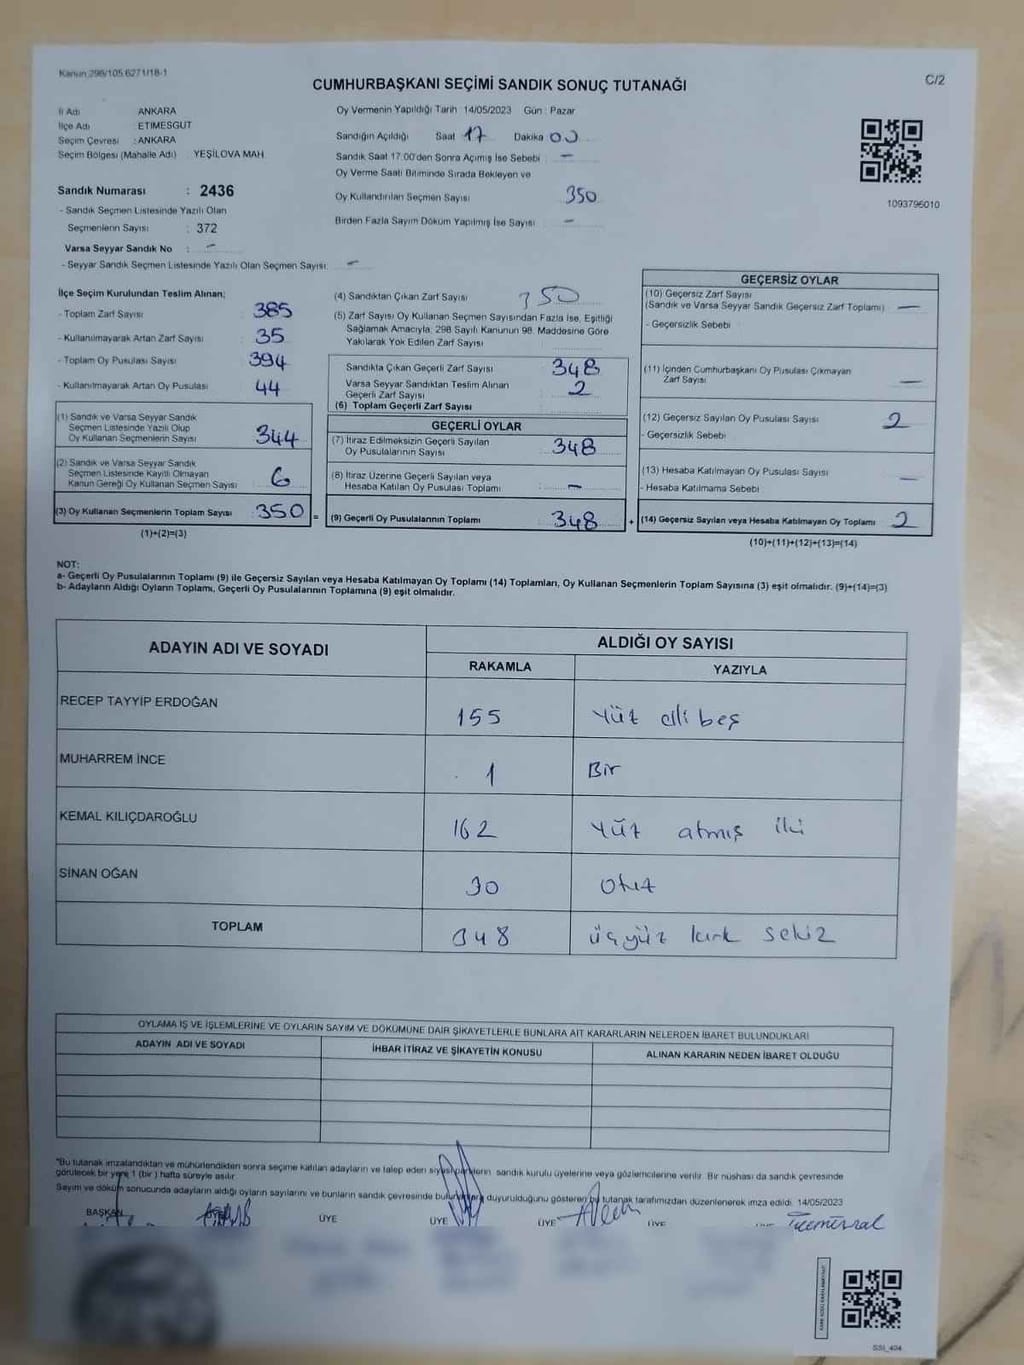 Kanun 298/105.6271/18-1
C/2
CUMHURBAŞKANI SEÇİMİ SANDIK SONUÇ TUTANAĞI
İl Adı ANKARA
İlçe Adı : ETİMESGUT
Seçim Çevresi : ANKARA
Seçim Bölgesi (Mahalle Adı) YEŞİLOVA MAH
Sandık Numarası : 2436
- Sandık Seçmen Listesinde Yazılı Olan
Seçmenlerin Sayısı : 372
Varsa Seyyar Sandık No : -
- Seyyar Sandık Seçmen Listesinde Yazılı Olan Seçmen Sayısı: -
Oy Vermenin Yapıldığı Tarih 14/05/2023 Gün : Pazar
Sandığın Açıldığı Saat 17 Dakika 00
Sandık Saat 17.00'den Sonra Açımış İse Sebebi : -
Oy Verme Saati Bitiminde Sırada Bekleyen ve
Oy Kullandırılan Seçmen Sayısı 350
Birden Fazla Sayım Döküm Yapılmış İse Sayısı : -
1093796010
İlçe Seçim Kurulundan Teslim Alınan;
- Toplam Zarf Sayısı : 385
- Kullanılmayarak Artan Zarf Sayısı : 35
- Toplam Oy Pusulası Sayısı : 394
- Kullanılmayarak Artan Oy Pusulası : 44
(1) Sandık ve Varsa Seyyar Sandık
Seçmen Listesinde Yazılı Olup
Oy Kullanan Seçmenlerin Sayısı : 344
(2) Sandık ve Varsa Seyyar Sandık
Seçmen Listesinde Kayıtlı Olmayan
Kanun Gereği Oy Kullanan Seçmen Sayısı : 6
(3) Oy Kullanan Seçmenlerin Toplam Sayısı : 350 =
(1)+(2)=(3)
(4) Sandıktan Çıkan Zarf Sayısı : 350
(5) Zarf Sayısı Oy Kullanan Seçmen Sayısından Fazla İse, Eşitliği
Sağlamak Amacıyla; 298 Sayılı Kanunun 98. Maddesine Göre
Yakılarak Yok Edilen Zarf Sayısı
Sandıkta Çıkan Geçerli Zarf Sayısı : 348
Varsa Seyyar Sandıktan Teslim Alınan
Geçerli Zarf Sayısı : 2
(6) Toplam Geçerli Zarf Sayısı
GEÇERLİ OYLAR
(7) İtiraz Edilmeksizin Geçerli Sayılan
Oy Pusulalarının Sayısı : 348
(8) İtiraz Üzerine Geçerli Sayılan veya
Hesaba Katılan Oy Pusulası Toplamı : -
(9) Geçerli Oy Pusulalarının Toplamı : 348 +
GEÇERSİZ OYLAR
(10) Geçersiz Zarf Sayısı
(Sandık ve Varsa Seyyar Sandık Geçersiz Zarf Toplamı) : -
- Geçersizlik Sebebi :
(11) İçinden Cumhurbaşkanı Oy Pusulası Çıkmayan
Zarf Sayısı : -
(12) Geçersiz Sayılan Oy Pusulası Sayısı : 2
- Geçersizlik Sebebi :
(13) Hesaba Katılmayan Oy Pusulası Sayısı : -
- Hesaba Katılmama Sebebi :
(14) Geçersiz Sayılan veya Hesaba Katılmayan Oy Toplamı : 2
(10)+(11)+(12)+(13)=(14)
NOT:
a- Geçerli Oy Pusulalarının Toplamı (9) ile Geçersiz Sayılan veya Hesaba Katılmayan Oy Toplamı (14) Toplamları, Oy Kullanan Seçmenlerin Toplam Sayısına (3) eşit olmalıdır. (9)+(14)=(3)
b- Adayların Aldığı Oyların Toplamı, Geçerli Oy Pusulalarının Toplamına (9) eşit olmalıdır.
ADAYIN ADI VE SOYADI
ALDIĞI OY SAYISI
RAKAMLA YAZIYLA
RECEP TAYYİP ERDOĞAN 155 Yüz elli beş
MUHARREM İNCE 1 Bir
KEMAL KILIÇDAROĞLU 162 Yüz atmış iki
SİNAN OĞAN 30 Otuz
TOPLAM 348 üçyüz kırk sekiz
OYLAMA İŞ VE İŞLEMLERİNE VE OYLARIN SAYIM VE DÖKÜMÜNE DAİR ŞİKAYETLERLE BUNLARA AİT KARARLARIN NELERDEN İBARET BULUNDUKLARI
ADAYIN ADI VE SOYADI İHBAR İTİRAZ VE ŞİKAYETİN KONUSU ALINAN KARARIN NEDEN İBARET OLDUĞU
*Bu tutanak imzalandıktan ve mühürlendikten sonra seçime katılan adayların ve talep eden siyasi partilerin sandık kurulu üyelerine veya gözlemcilerine verilir. Bir nüshası da sandık çevresinde
görülecek bir yere 1 (bir) hafta süreyle asılır.
Sayım ve döküm sonucunda adayların aldığı oyların sayılarını ve bunların sandık çevresinde bulunanlara duyurulduğunu gösteren bu tutanak tarafımızdan düzenlenerek imza edildi. 14/05/2023
BAŞKAN ÜYE ÜYE ÜYE ÜYE